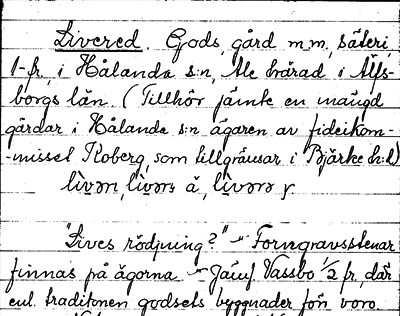 Livered. Gods, gård m.m., säteri,
1 fr., i Hålanda s:n, Ale härad i Älfs-
borgs län. (Tillhör jämte en mängd
gårdar i Hålanda s:n ägaren av fideikom-
-misset Koberg, som tillgränsar i Bjärke h:d)
livən, livərs å, livərə
"Lives rödjning?" – Forngravsstenar
finnas på ägorna. – Jämf Vassbo 1/2 fr, där
enl. traditonen godsets byggnader förr voro